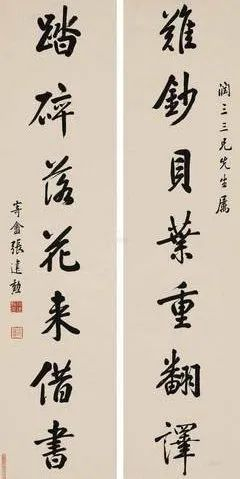 潤三三兄先生属
難鈔貝葉重翻譯
踏碎落花来借書
張建勳